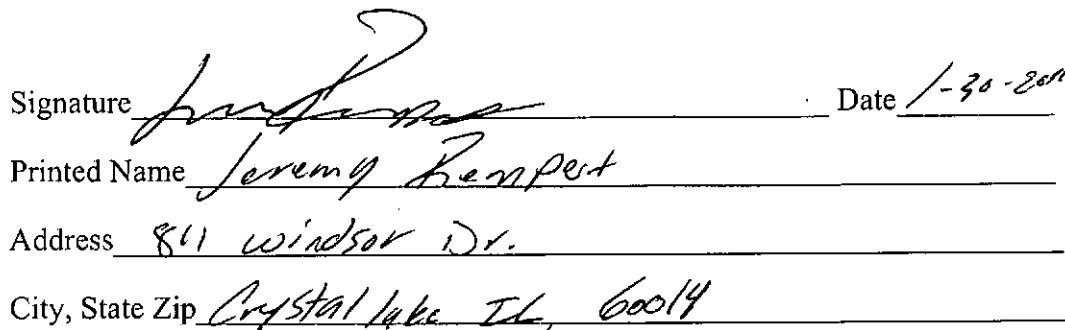 Signature Date 1-30-2011
Printed Name Jeremy Rempert
Address 811 Windsor Dr.
City, State Zip Crystal lake IL, 60014